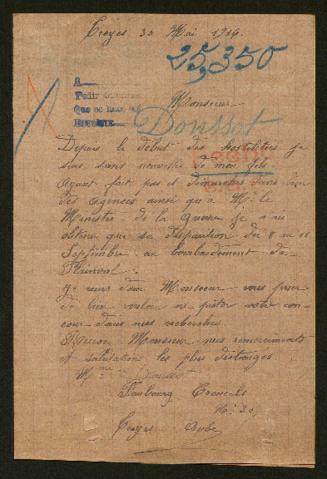 Troyes 30 Mai 1916.
25,350
A
Monsieur
Doussot
Depuis le début des hostilités je
suis sans nouvelle de mon fils
ayant fait pas et démarches
des agences ainsi qu'à M. le
Ministre de la Guerre je n'ai
obtenu que sa disparition du 8 au
Septembre au bombardement de
Je viens donc Monsieur vous prier
de bien vouloir me prêter votre con-
cours dans mes recherches
Monsieur mes remerciements
et salutations les plus distingués.
Mme Doussot
Faubourg Croncels
No: 30
Troyes Aube